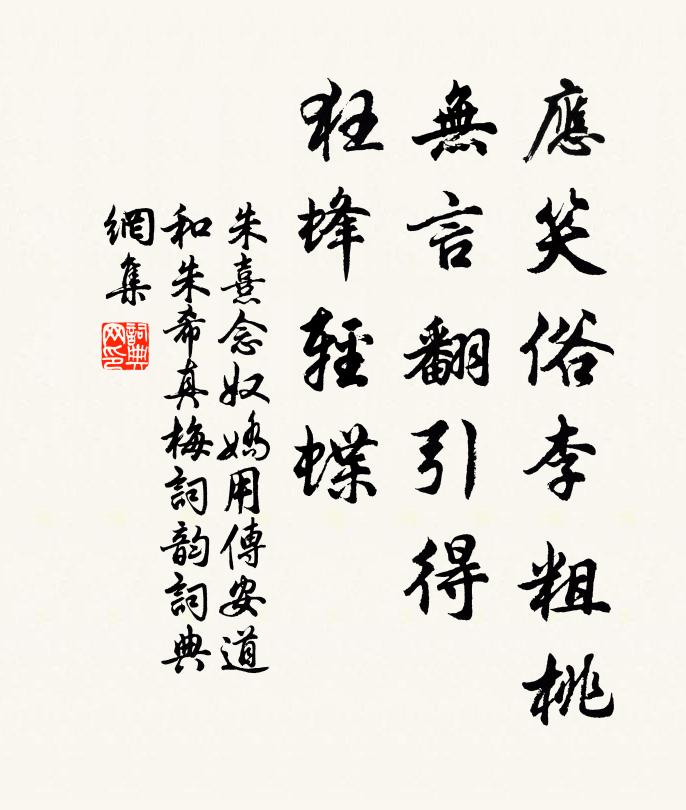 應笑俗李粗桃
無言翻引得
狂蜂輕蝶
朱熹念奴嬌用傅安道
和朱希真梅詞韵詞典
網集
詞典
网印